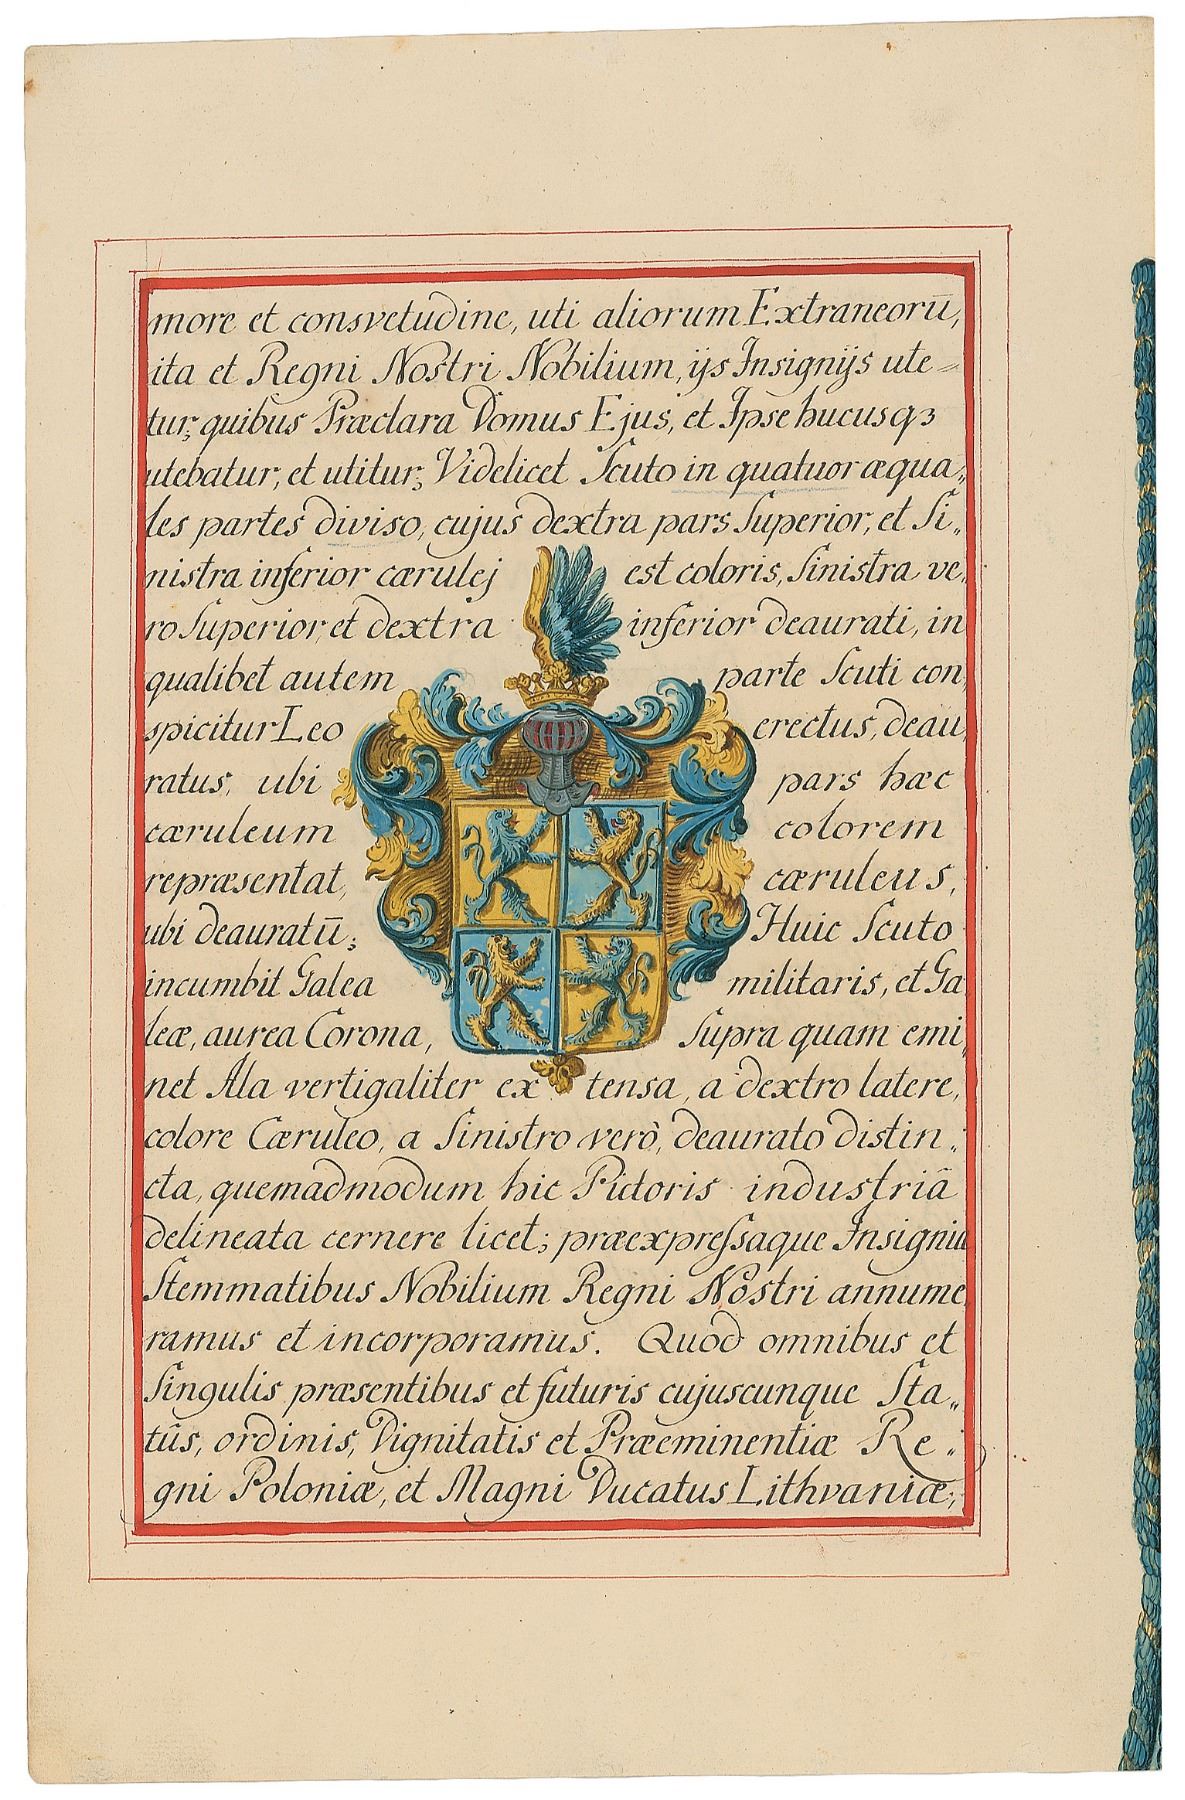 more et consvetudine, uti aliorum Extraneorū,
ita et Regni Nostri Nobilium, ijs Insignijs ute=
tur; quibus Præclara Domus Ejus, et Ipse hucusqȝ
utebatur, et utitur; Videlicet Scuto in quatuor æqua„
les partes diviso, cujus dextra pars Superior, et Si„
nistra inferior cærulej est coloris, Sinistra ve„
ro Superior, et dextra inferior deaurati, in
qualibet autem parte Scuti con„
spicitur Leo erectus, deau„
ratus, ubi pars hæc
cæruleum colorem
repræsentat, cæruleus,
ubi deauratū; Huic Scuto
incumbit Galea militaris, et Ga„
leæ, aurea Corona, supra quam emi„
net Ala vertigaliter extensa, a dextro latere,
colore Cæruleo, a Sinistro verò, deaurato distin„
cta, quemadmodum hic Pictoris industriâ
delineata cernere licet; præexpressaque Insignia
Stemmatibus Nobilium Regni Nostri annume„
ramus et incorporamus. Quod omnibus et
Singulis præsentibus et futuris cujuscunque Sta„
tûs, ordinis, Dignitatis et Præeminentiæ Re„
gni Poloniæ, et Magni Ducatus Lithvaniæ,